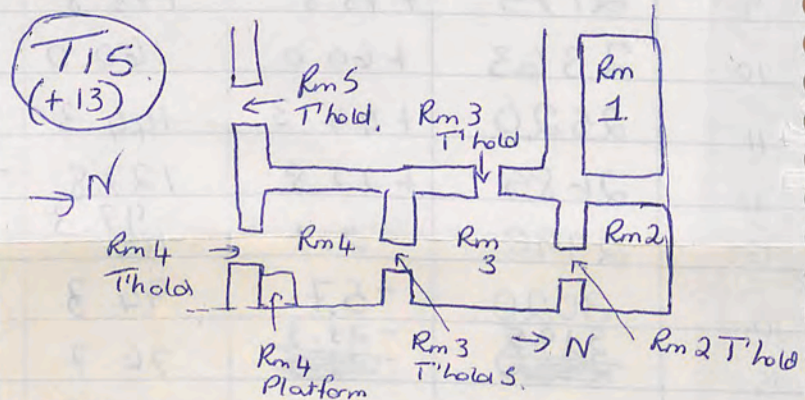 T15
(+13)
→ N
Rm5
T'hold.
Rm 3
T'hold
Rm
1.
Rm4
T'hold
Rm4
Rm
3
Rm2
Rm4
Platform
Rm3
T'hold S.
→ N
Rm2 T'hold